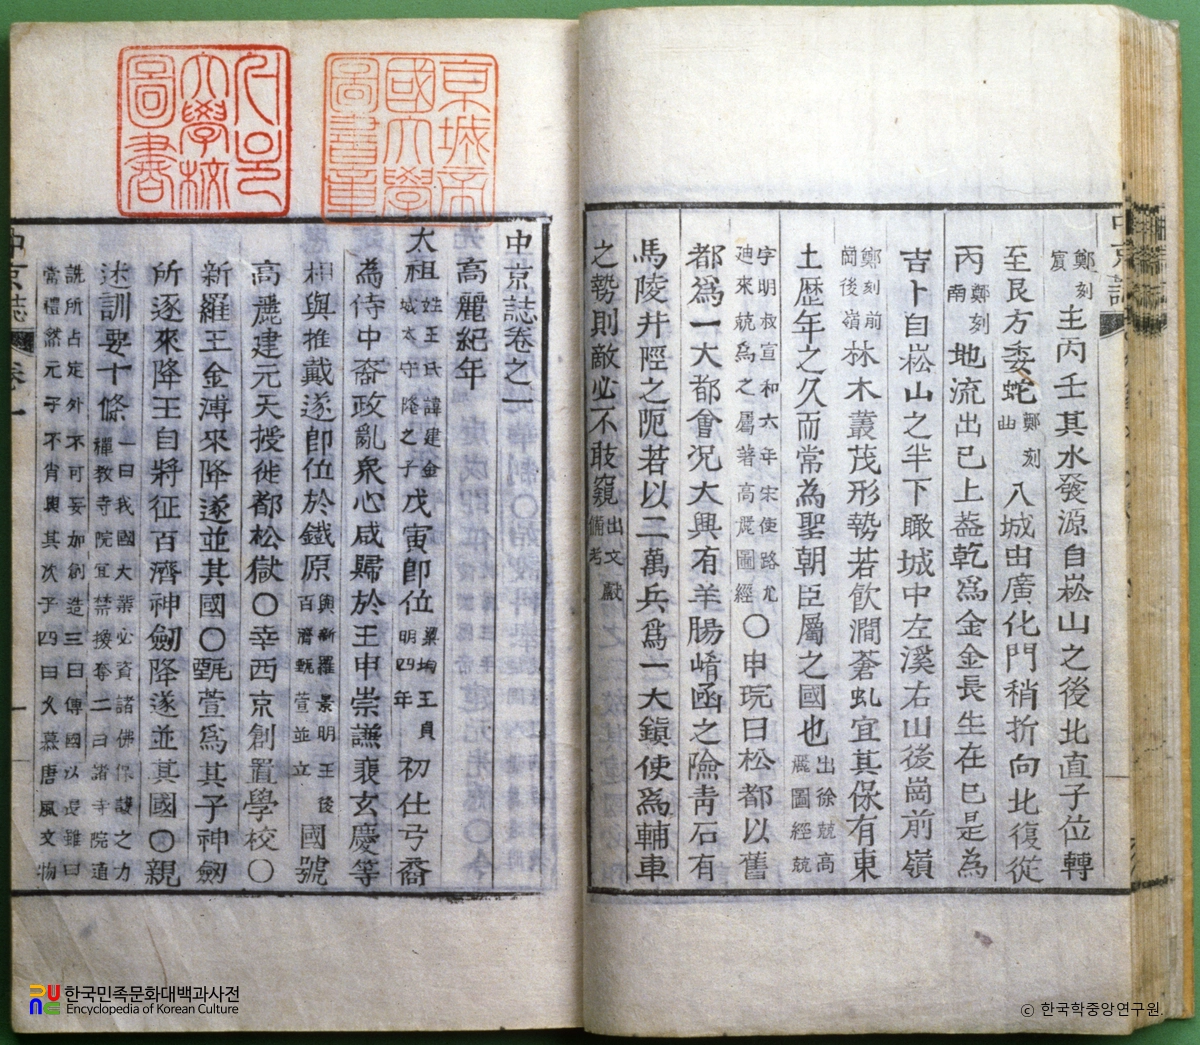 鄭刻
主丙壬其水發源自崧山之後北直子位轉
至艮方委蛇
鄭刻
山
八城由廣化門稍折向北復從
丙
鄭刻
南
地流出巳上蓋乾爲金金長生在巳是為
吉卜自崧山之半下瞰城中左溪右山後崗前嶺
鄭刻前
崗後嶺
林木叢茂形勢若飮澗蒼虬宜其保有東
土歷年之久而常為聖朝臣屬之國也
出徐兢高
麗圖經兢
字明叔宣和六年宋使路允
迪來兢爲之屬著高麗圖經
○申玩曰松都以舊
都爲一大都會况大興有羊腸崤函之險靑石有
馬陵井陘之阨若以二萬兵爲一大鎭使爲輔車
之勢則敵必不敢窺
出文獻
備考
中京誌卷之一
高麗紀年
太祖
姓王氏諱建金
城太守隆之子
戊寅卽位
梁均王貞
明四年
初仕弓裔
為侍中裔政亂衆心咸歸於王申崇謙裵玄慶等
相與推戴遂卽位於鐵原
與新羅景明王後
百濟甄萱並立
國號
高麗建元天授徙都松嶽○幸西京創置學校○
新羅王金溥來降遂並其國○甄萱爲其子神劒
所逐來降王自將征百濟神劒降遂並其國○親
述訓要十條
一曰我國大業必資諸佛保護之力
禪教寺院宜禁換奪二曰諸寺院道
詵所占定外不可妄加創造三曰傳國以長雖曰
常禮然元子不肖與其次子四曰久慕唐風文物
中京誌
卷一
一
京城帝
國大學
圖書章
大學校
圖書
한국민족문화대백과사전
Encyclopedia of Korean Culture
ⓒ 한국학중앙연구원